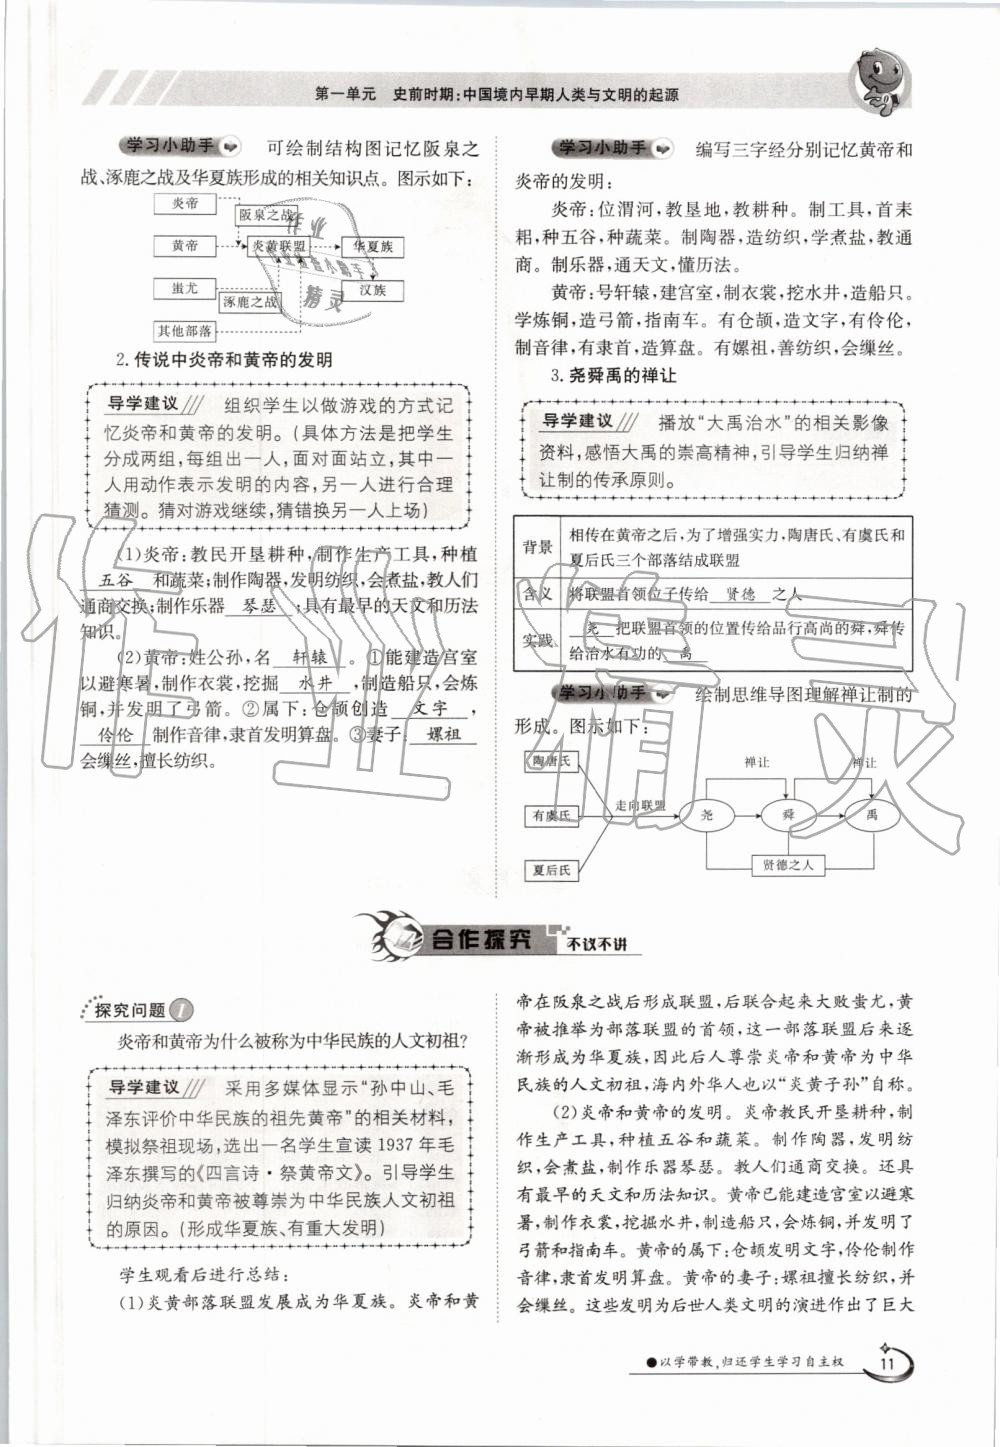 第一单元 史前时期:中国境内早期人类与文明的起源
学习小助手 可绘制结构图记忆阪泉之
战、涿鹿之战及华夏族形成的相关知识点。图示如下:
炎帝
阪泉之战
黄帝
炎黄联盟
华夏族
蚩尤
涿鹿之战
汉族
其他部落
2.传说中炎帝和黄帝的发明
导学建议 组织学生以做游戏的方式记
忆炎帝和黄帝的发明。(具体方法是把学生
分成两组,每组出一人,面对面站立,其中一
人用动作表示发明的内容,另一人进行合理
猜测。猜对游戏继续,猜错换另一人上场)
(1)炎帝:教民开垦耕种,制作生产工具,种植
五谷 和蔬菜;制作陶器,发明纺织,会煮盐,教人们
通商交换;制作乐器 琴瑟 ;具有最早的天文和历法
知识。
(2)黄帝:姓公孙,名 轩辕 。①能建造宫室
以避寒暑,制作衣裳,挖掘 水井 ,制造船只,会炼
铜,并发明了弓箭。②属下:仓颉创造 文字 ,
伶伦 制作音律,隶首发明算盘。③妻子: 嫘祖
会缫丝,擅长纺织。
学习小助手 编写三字经分别记忆黄帝和
炎帝的发明:
炎帝:位渭河,教垦地,教耕种。制工具,首耒
耜,种五谷,种蔬菜。制陶器,造纺织,学煮盐,教通
商。制乐器,通天文,懂历法。
黄帝:号轩辕,建宫室,制衣裳,挖水井,造船只。
学炼铜,造弓箭,指南车。有仓颉,造文字,有伶伦,
制音律,有隶首,造算盘。有嫘祖,善纺织,会缫丝。
3.尧舜禹的禅让
导学建议 播放“大禹治水”的相关影像
资料,感悟大禹的崇高精神,引导学生归纳禅
让制的传承原则。
背景 相传在黄帝之后,为了增强实力,陶唐氏、有虞氏和
夏后氏三个部落结成联盟
含义 将联盟首领位子传给 贤德 之人
实践 尧 把联盟首领的位置传给品行高尚的舜,舜传
给治水有功的 禹
学习小助手 绘制思维导图理解禅让制的
形成。图示如下:
陶唐氏
有虞氏
夏后氏
走向联盟
尧
禅让
舜
禅让
禹
贤德之人
合作探究 不议不讲
探究问题 1
炎帝和黄帝为什么被称为中华民族的人文初祖?
导学建议 采用多媒体显示“孙中山、毛
泽东评价中华民族的祖先黄帝”的相关材料,
模拟祭祖现场,选出一名学生宣读1937年毛
泽东撰写的《四言诗·祭黄帝文》。引导学生
归纳炎帝和黄帝被尊崇为中华民族人文初祖
的原因。(形成华夏族、有重大发明)
学生观看后进行总结:
(1)炎黄部落联盟发展成为华夏族。炎帝和黄
帝在阪泉之战后形成联盟,后联合起来大败蚩尤,黄
帝被推举为部落联盟的首领,这一部落联盟后来逐
渐形成为华夏族,因此后人尊崇炎帝和黄帝为中华
民族的人文初祖,海内外华人也以“炎黄子孙”自称。
(2)炎帝和黄帝的发明。炎帝教民开垦耕种,制
作生产工具,种植五谷和蔬菜。制作陶器,发明纺
织,会煮盐,制作乐器琴瑟。教人们通商交换。还具
有最早的天文和历法知识。黄帝已能建造宫室以避寒
暑,制作衣裳,挖掘水井,制造船只,会炼铜,并发明了
弓箭和指南车。黄帝的属下:仓颉发明文字,伶伦制作
音律,隶首发明算盘。黄帝的妻子:嫘祖擅长纺织,并
会缫丝。这些发明为后世人类文明的演进作出了巨大
●以学带教,归还学生学习自主权
11
作业精灵